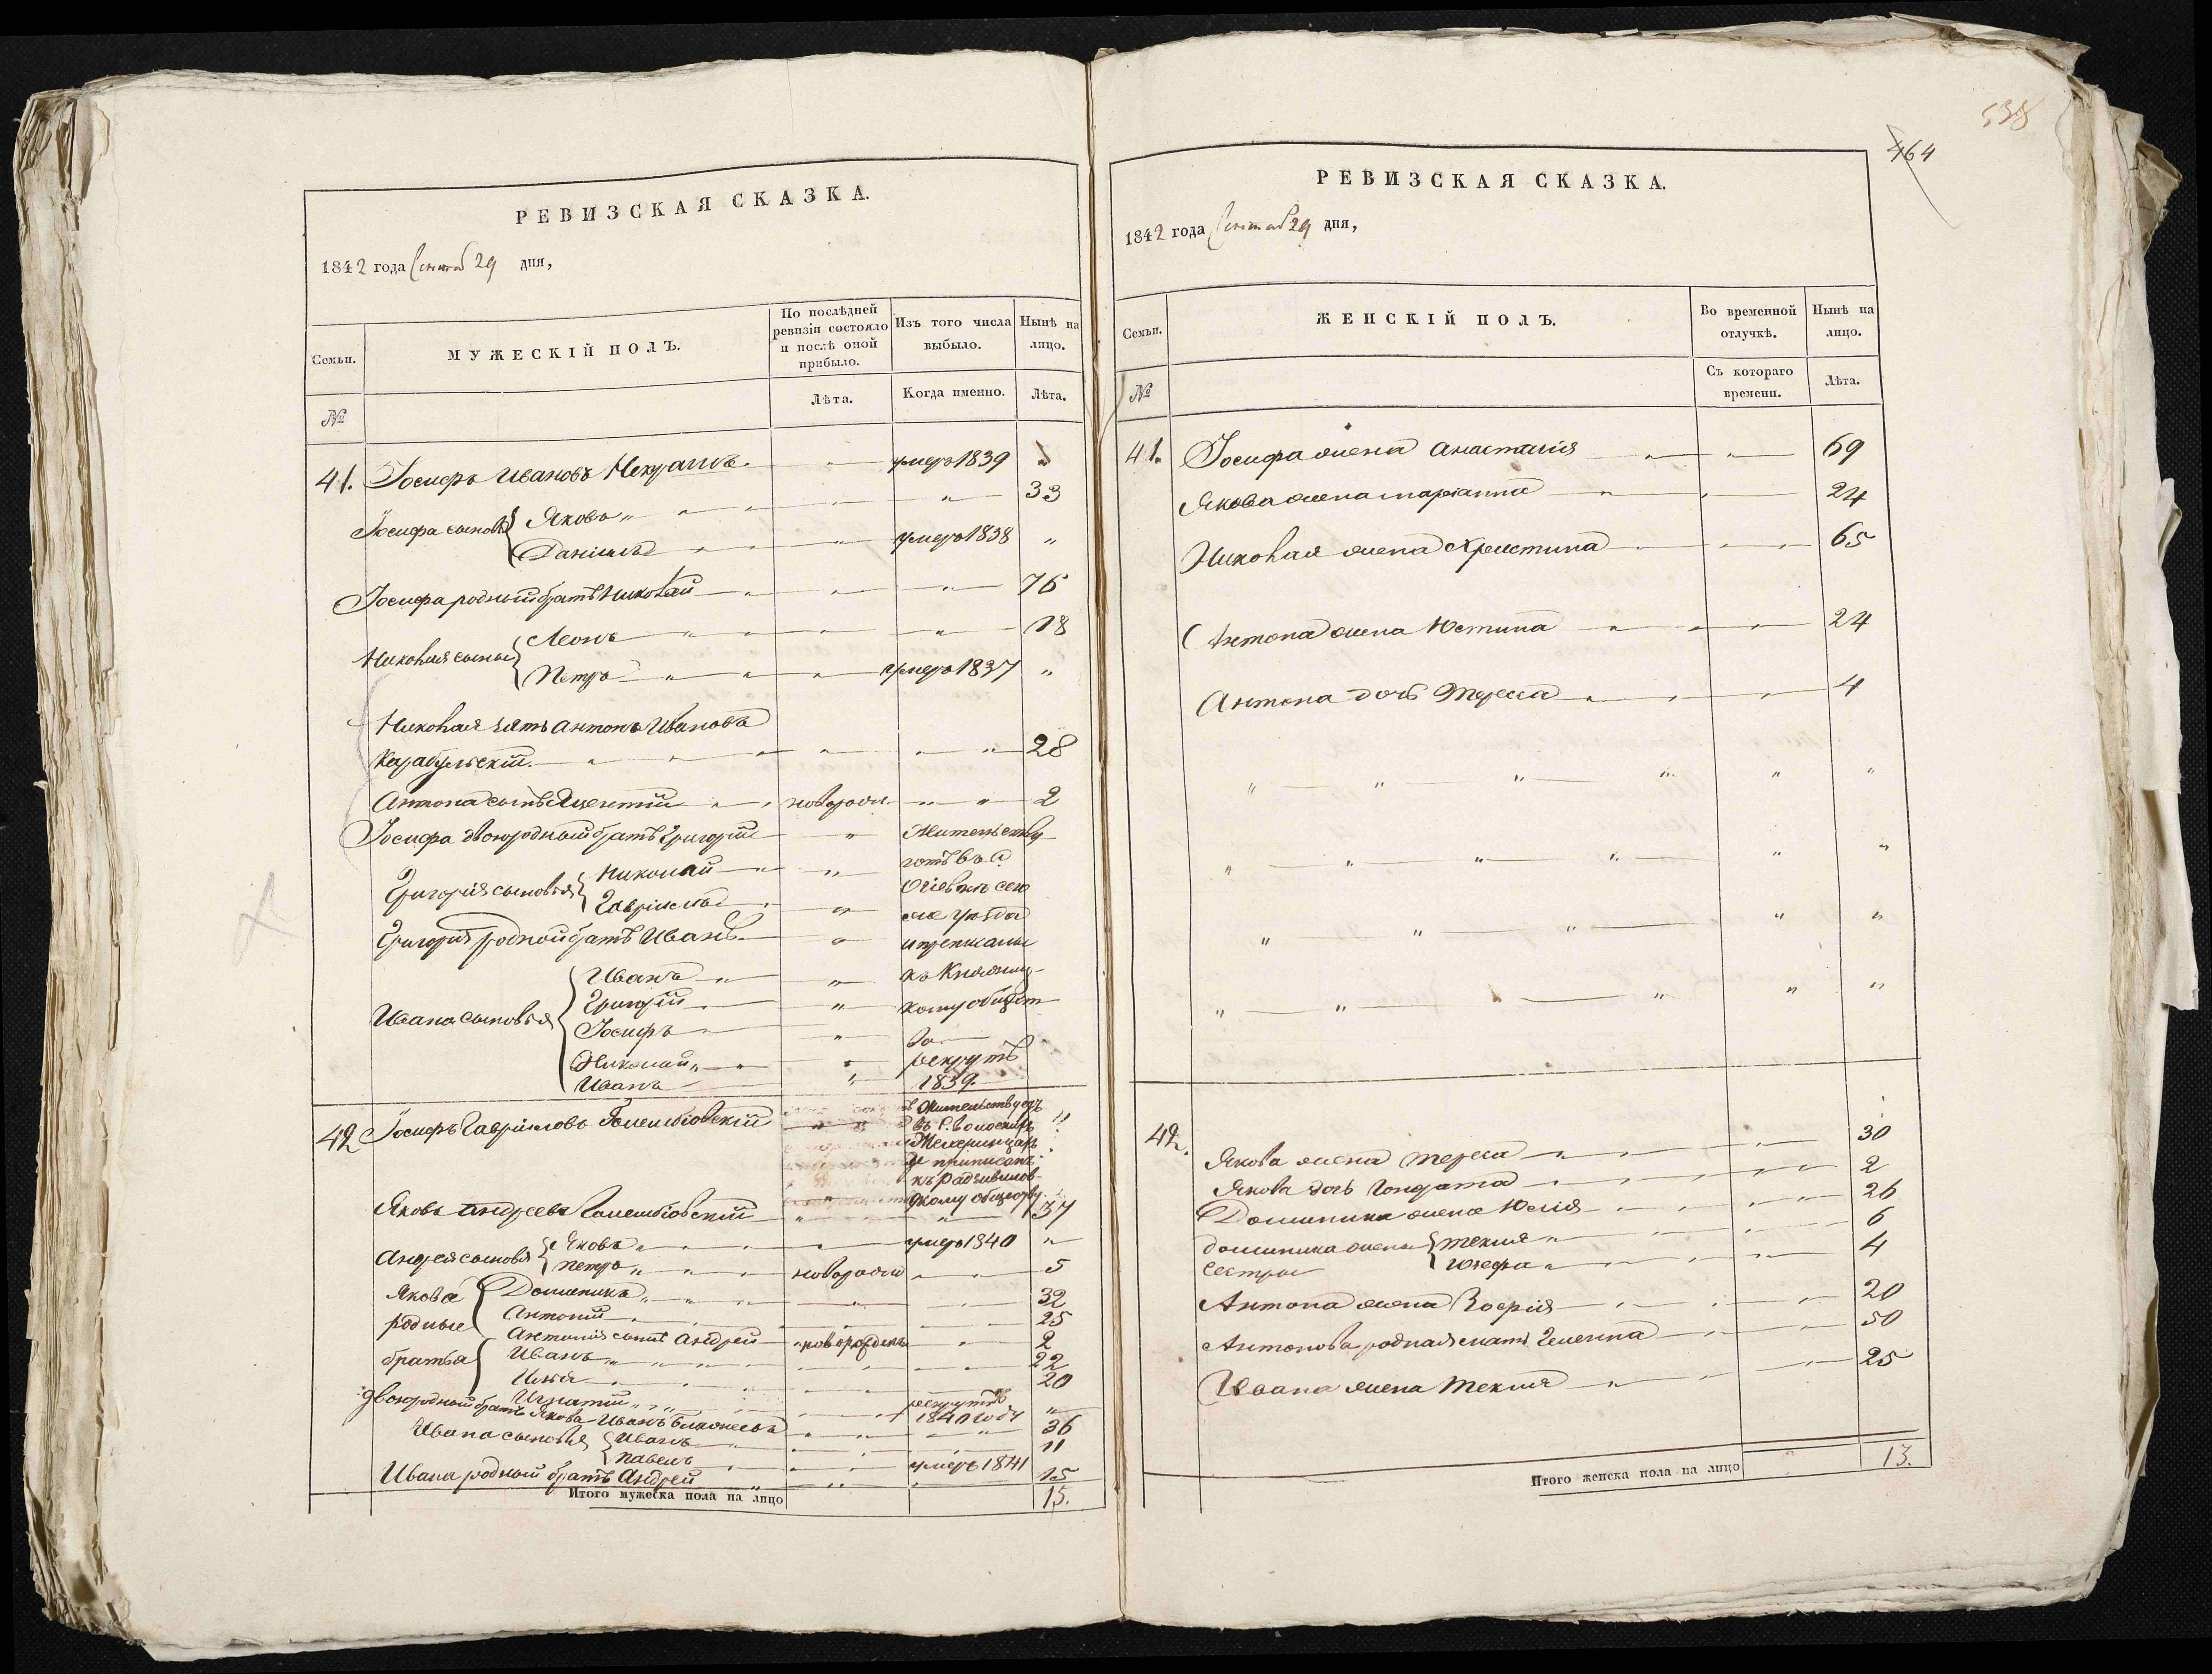 РЕВИЗСКАЯ СКАЗКА.
1842 года Сентяб 29 дня,
Семьи.
МУЖЕСКІЙ ПОЛЪ.
По послѣдней ревизіи состояло и послѣ оной прибыло.
Изъ того числа выбыло.
Нынѣ на лицо.
№
Лѣта.
Когда именно.
Лѣта.
41. Іосифъ Ивановъ " умеръ 1839 "
Іосифа сыновья Яковъ " " " 33
Даніилъ " " умеръ 1838 "
Іосифа родный братъ Николай " " " 76
Николая сыны Леонъ " " " 18
Петръ " " " умеръ 1837 "
Николая зять Антонъ Ивановъ
" " " " " 28
Антона сынъ " новорожд " " 2
Іосифа двоюродный братъ Григорій " Жительству
Григорія сыновья Николай " " ютъ въ с.
Гавріилъ " " сего
Григорія родной братъ Иванъ " же уѣзда
и приписаны
Ивана сыновья Иванъ " " къ
Григорій " " кому общест
Іосифъ " " ву
Николай " " " рекрутъ
Иванъ " 1839.
42 Іосифъ Гавріиловъ Жительствуетъ "
въ С.
и приписанъ
къ Радзивилов-
скому обществу
Яковъ Андреевъ " " 37
Андрея сыновья Яковъ " " " умеръ 1840 "
Петръ " " новорожд " " 5
Якова родные братья Доминикъ " " " 32
Антоній " " " 25
Антонія сынъ Андрей новорожденъ " 2
Иванъ " " " " " 22
Илья " " " 20
Игнатій " " " рекрутъ 1840 году "
двоюродный братъ Якова Иванъ " " " 36
Ивана сыновья Иванъ " " " 11
Павелъ " " " умеръ 1841
Ивана родный братъ Андрей " " " 15
Итого мужеска пола на лицо 15.
538
464
РЕВИЗСКАЯ СКАЗКА.
1842 года Сентяб 29 дня,
Семьи.
ЖЕНСКІЙ ПОЛЪ.
Во временной отлучкѣ.
Нынѣ на лицо.
№
Съ котораго времени.
Лѣта.
41. Іосифа жена Анастасія " " 69
Якова жена Маріанна " " 24
Николая жена Христина " " 65
Антона жена Юстина " " " 24
Антона дочь Тереса " " " 4
" " " " " "
" " " " " "
" " " " " "
" " " " "
42. Якова жена Тереса " " " 30
Якова дочь " " " 2
Доминика жена Юлія " " " 26
Доминика жены сестры Текля " " " 6
Юзефа " " " 4
Антона жена Зофія " " " 20
Антонова родная мать " " 50
Ивана жена Текля " " " 25
Итого женска пола на лицо 13.